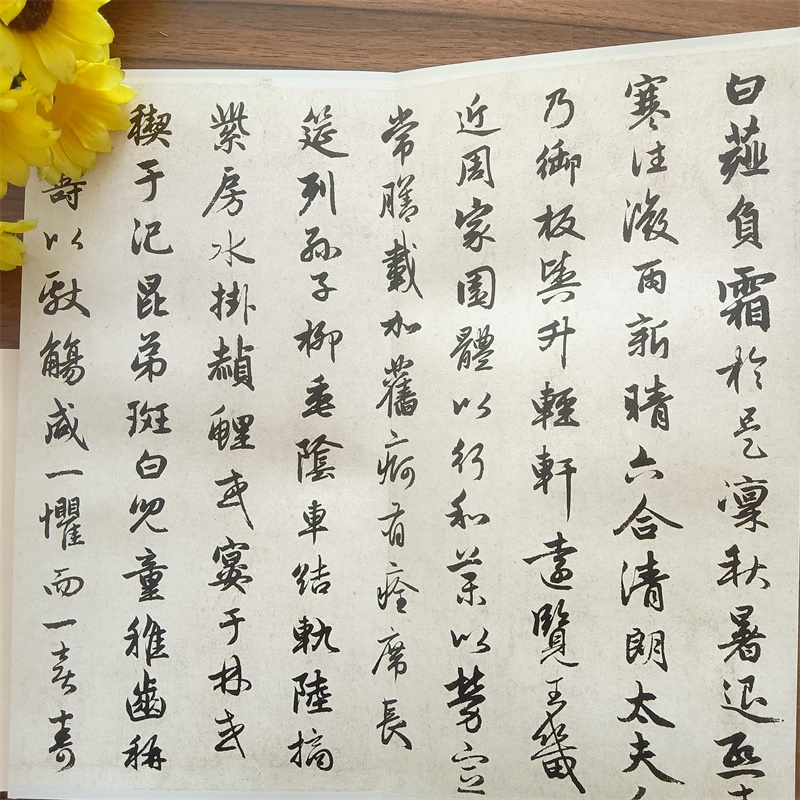 白薤負霜於是凜秋暑退熙
寒往雨新晴六合清朗太夫
乃御板輿升輕軒遠覽王畿
近周家園體以行和藥以勞宣
常膳載加舊痾有痊席長
筵列孫子柳垂陰車結軌陸摘
紫房水掛赬鯉或宴于林或
禊于汜昆弟斑白兒童稚齒稱
壽以獻觴咸一懼而一喜壽